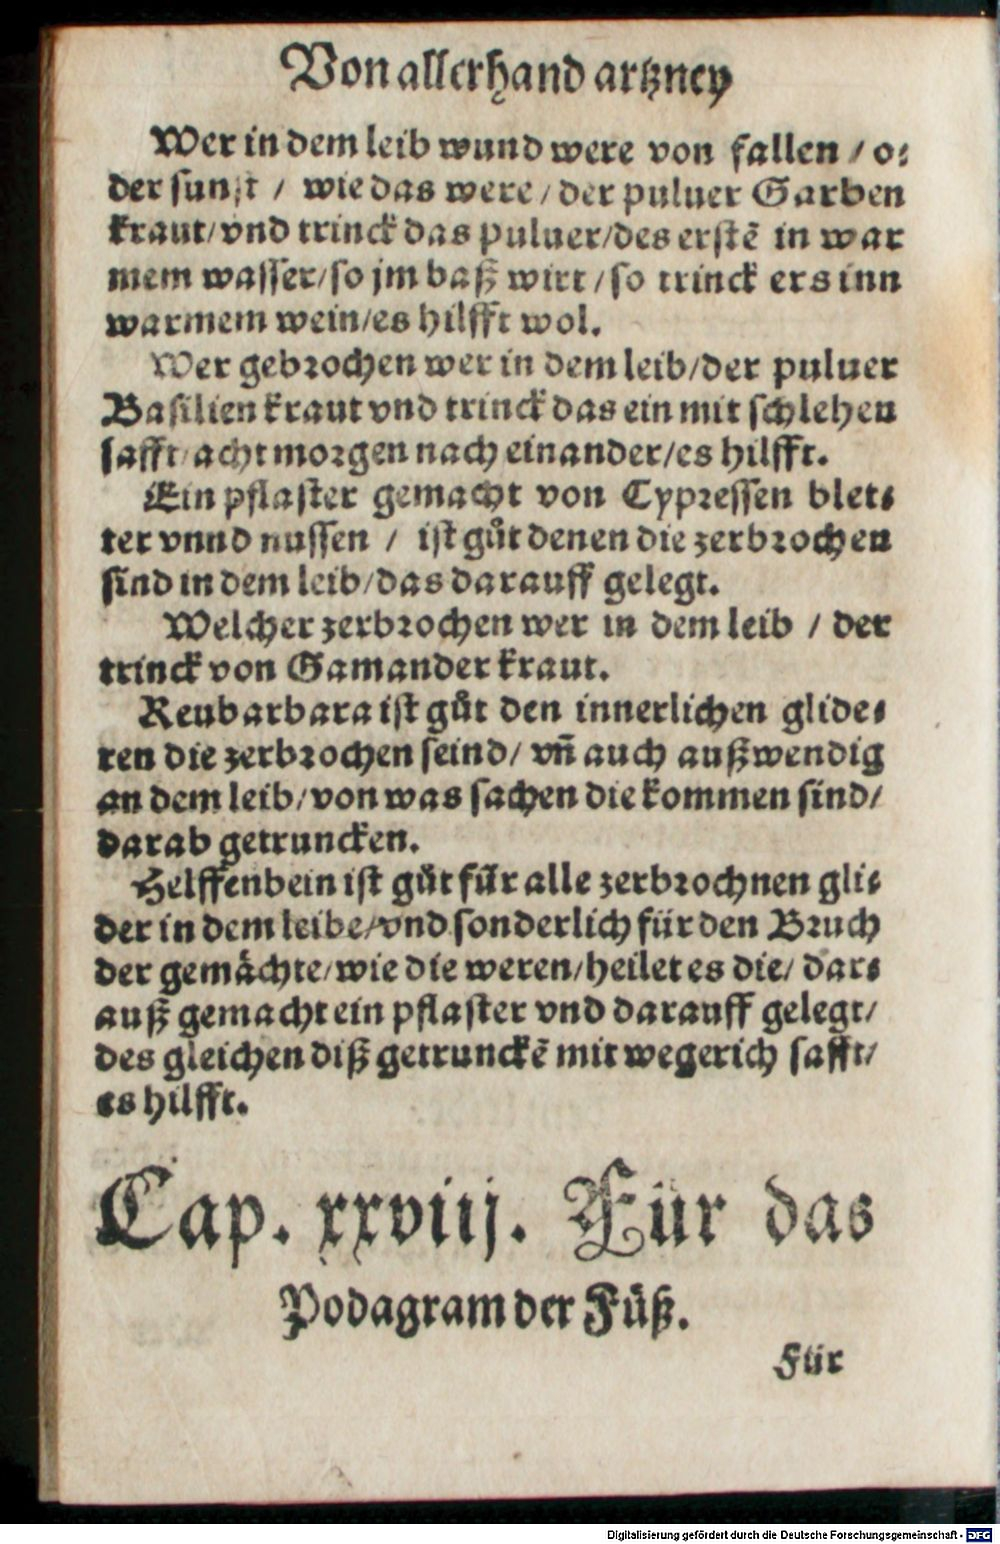 Von allerhand artzney
Wer in dem leib wund were von fallen / o⸗
der sunst / wie das were / der puluer Garben
kraut / vnd trinck das puluer / des erstẽ in war
mem wasser / so jm baß wirt / so trinck ers inn
warmem wein / es hilfft wol.
Wer gebrochen wer in dem leib / der puluer
Basilien kraut vnd trinck das ein mit schlehen
safft / acht morgen nach einander / es hilfft.
Ein pflaster gemacht von Cypressen blet⸗
ter vnnd nussen / ist gůt denen die zerbrochen
sind in dem leib / das darauff gelegt.
Welcher zerbrochen wer in dem leib / der
trinck von Gamander kraut.
Reubarbara ist gůt den innerlichen glide⸗
ren die zerbrochen seind / vñ auch außwendig
an dem leib / von was sachen die kommen sind /
darab getruncken.
Helffenbein ist gůt für alle zerbrochnen gli⸗
der in dem leibe / vnd sonderlich für den Bruch
der gemächte / wie die weren / heilet es die / dar⸗
auß gemacht ein pflaster vnd darauff gelegt /
des gleichen diß getrunckẽ mit wegerich safft /
es hilfft.
Cap. xxviij. Für das
Podagram der Füß.
Für
Digitalisierung gefördert durch die Deutsche Forschungsgemeinschaft - DFG